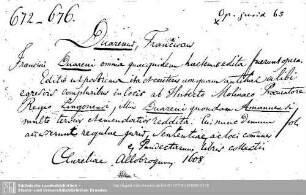 672–676. Op. jurid 63
Duarenus, Franciscus
Francisci Duareni omnia quae quidem hactenus edita fuerunt opera.
Editio postrema ita
egredere compluribus in locis ab Huberto Molinaeo Procuratore
Regis Lingonensi illius Duareni quondam Amanuensi
multo tersior et emendatior reddita. Cui nunc demum fol.
accesserunt regulae juris, Sententiae, ac loci communes
ex Pandectarum libris collecti
Aureliae Allobrogum 1608.
Sächsische Landesbibliothek -
Staats- und Universitätsbibliothek Dresden